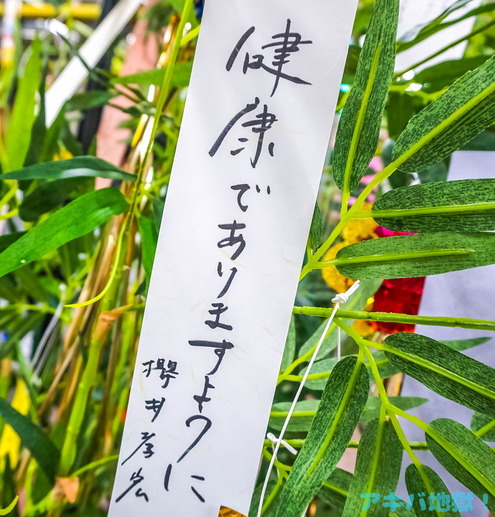 健康でありますように
櫻井孝宏
アキバ地獄！